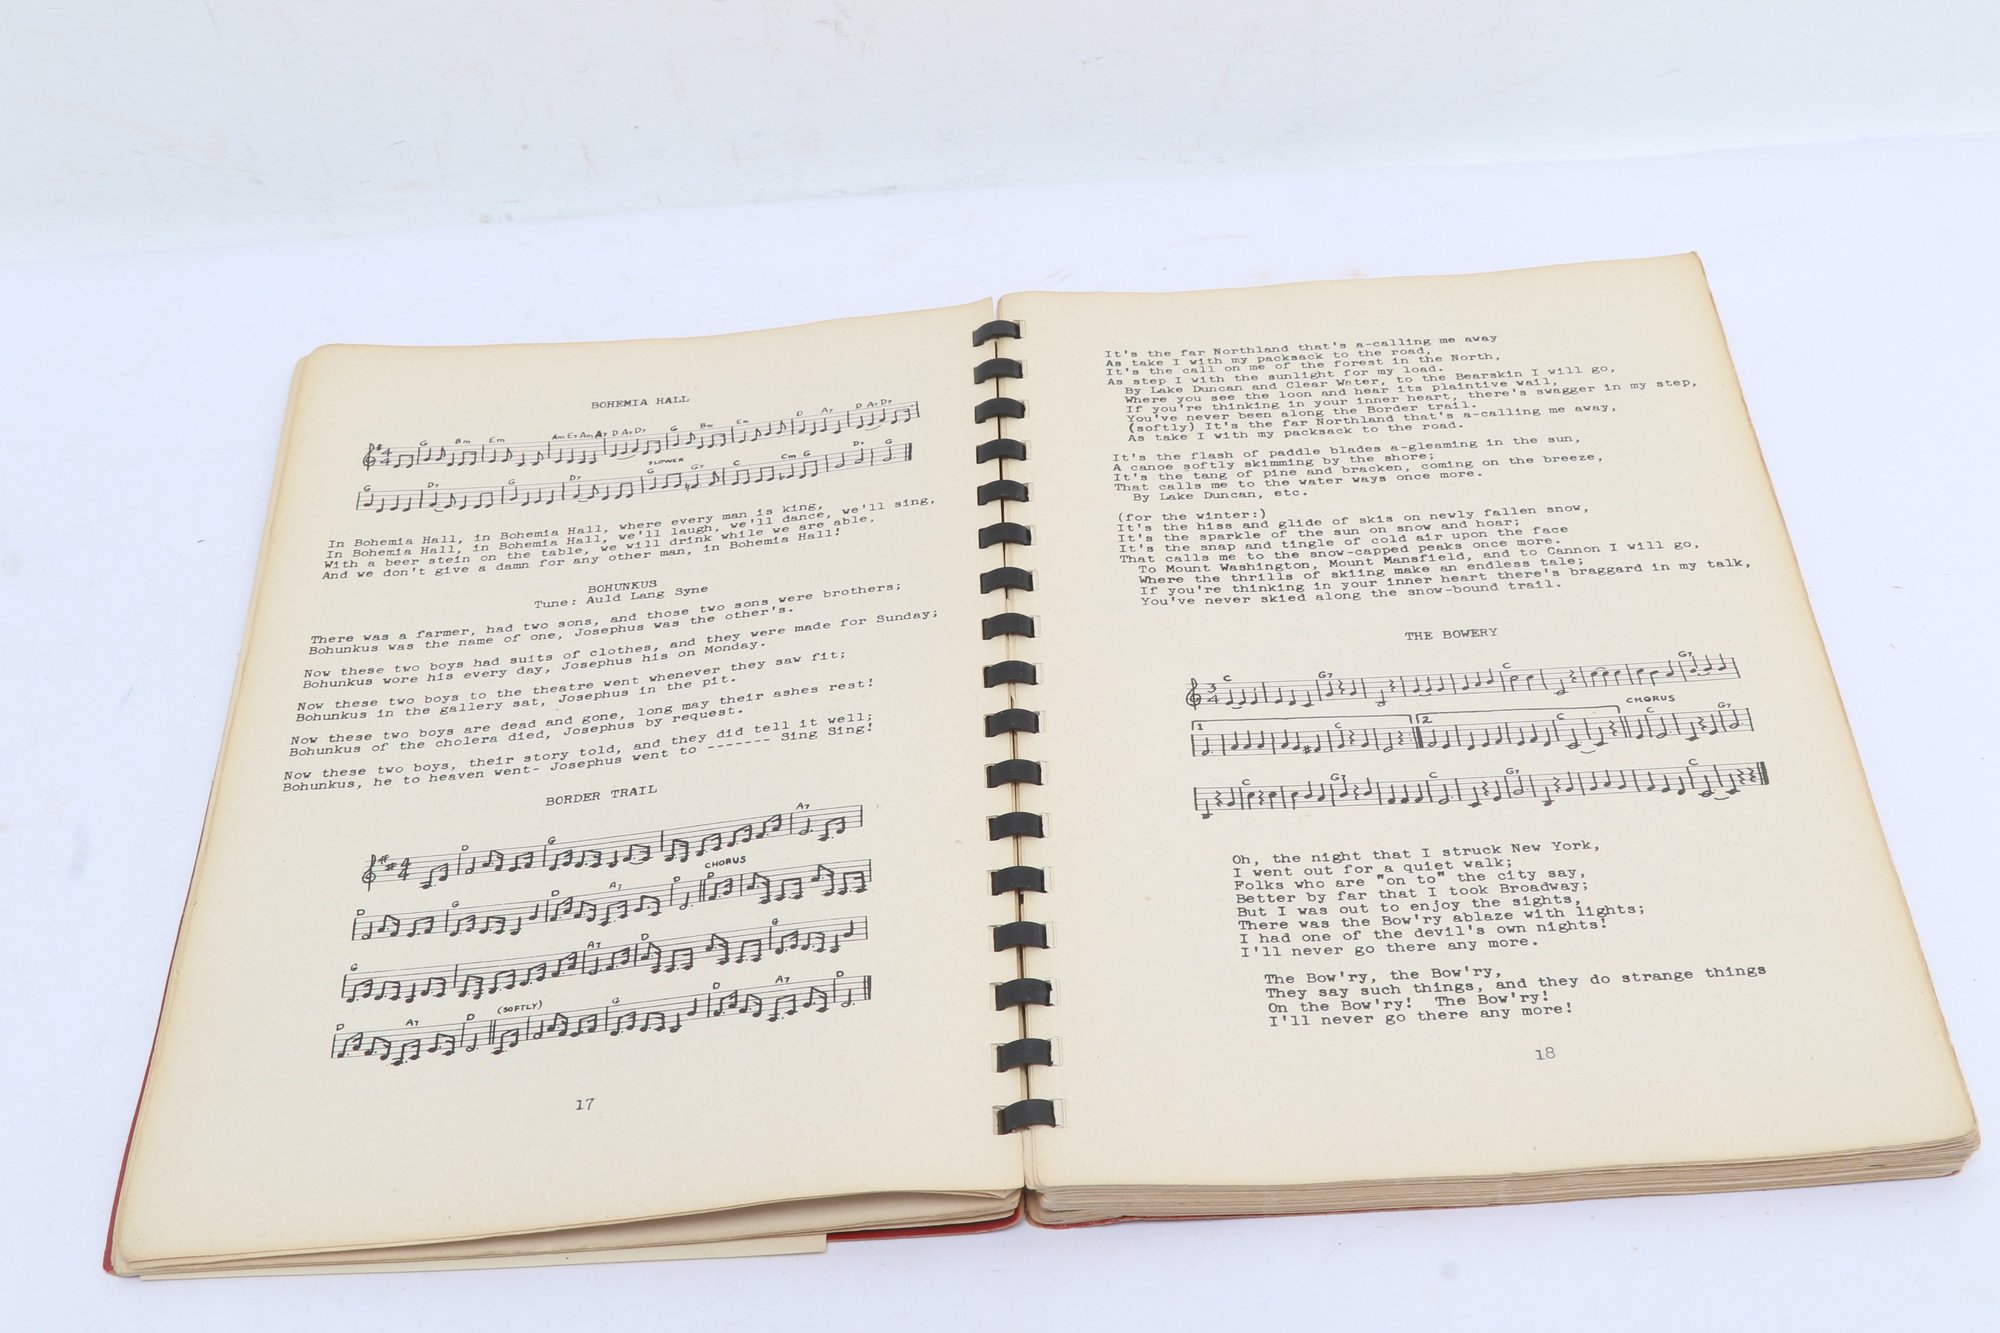 BOHEMIA HALL
G Bm Em Am E7 Am A7 D A7 D7 G Bm Em D A7 D A7 D7
4
4
SLOWER
G D7 G D7 G G7 C Cm G D7 G
In Bohemia Hall, in Bohemia Hall, where every man is king,
In Bohemia Hall, in Bohemia Hall, we'll laugh, we'll dance, we'll sing,
With a beer stein on the table, we will drink while we are able,
And we don't give a damn for any other man, in Bohemia Hall!
BOHUNKUS
Tune: Auld Lang Syne
There was a farmer, had two sons, and those two sons were brothers;
Bohunkus was the name of one, Josephus was the other's.
Now these two boys had suits of clothes, and they were made for Sunday;
Bohunkus wore his every day, Josephus his on Monday.
Now these two boys to the theatre went whenever they saw fit;
Bohunkus in the gallery sat, Josephus in the pit.
Now these two boys are dead and gone, long may their ashes rest!
Bohunkus of the cholera died, Josephus by request.
Now these two boys, their story told, and they did tell it well;
Bohunkus, he to heaven went- Josephus went to ------- Sing Sing!
BORDER TRAIL
D G A7
4
4
CHORUS
D G D A7 D D
G A7 D G
(SOFTLY)
D A7 D G D A7 D
17
It's the far Northland that's a-calling me away
As take I with my packsack to the road,
It's the call on me of the forest in the North,
As step I with the sunlight for my load.
By Lake Duncan and Clear Water, to the Bearskin I will go,
Where you see the loon and hear its plaintive wail,
If you're thinking in your inner heart, there's swagger in my step,
You've never been along the Border trail.
(softly) It's the far Northland that's a-calling me away,
As take I with my packsack to the road.
It's the flash of paddle blades a-gleaming in the sun,
A canoe softly skimming by the shore;
It's the tang of pine and bracken, coming on the breeze,
That calls me to the water ways once more.
By Lake Duncan, etc.
(for the winter:)
It's the hiss and glide of skis on newly fallen snow,
It's the sparkle of the sun on snow and hoar;
It's the snap and tingle of cold air upon the face
That calls me to the snow-capped peaks once more.
To Mount Washington, Mount Mansfield, and to Cannon I will go,
Where the thrills of skiing make an endless tale;
If you're thinking in your inner heart there's braggard in my talk,
You've never skied along the snow-bound trail.
THE BOWERY
C G7 C G7
3
4
CHORUS
1 C 2 C C G7
C G7 C G7 C
Oh, the night that I struck New York,
I went out for a quiet walk;
Folks who are "on to" the city say,
Better by far that I took Broadway;
But I was out to enjoy the sights,
There was the Bow'ry ablaze with lights;
I had one of the devil's own nights!
I'll never go there any more.
The Bow'ry, the Bow'ry,
They say such things, and they do strange things
On the Bow'ry! The Bow'ry!
I'll never go there any more!
18